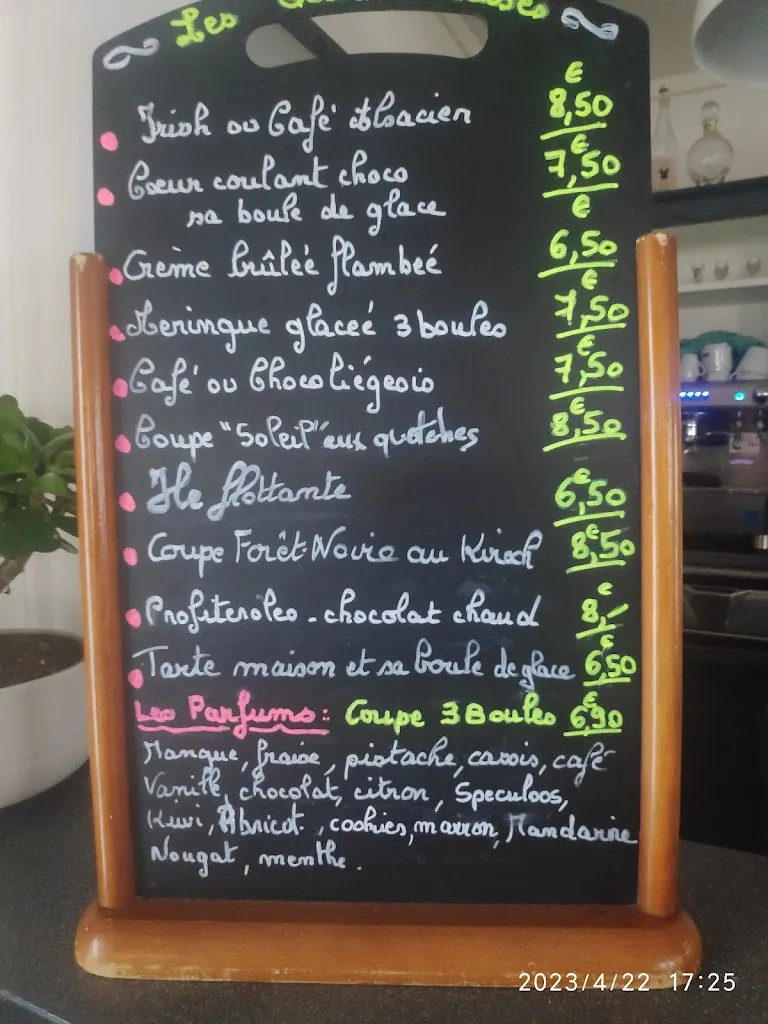 Les
Irish ou Café Alsacien 8,50 €
Coeur coulant choco 7,50 €
sa boule de glace
Crème brûlée flambée 6,50 €
Meringue glacée 3 boules 7,50 €
Café ou Choco liégeois 7,50 €
Coupe "Soleil" aux quetches 8,50 €
Ile flottante 6,50 €
Coupe Forêt-Noire au Kirsch 8,50 €
Profiteroles - chocolat chaud 8,- €
Tarte maison et sa boule de glace 6,50 €
Les Parfums: Coupe 3 Boules 6,90 €
Mangue, fraise, pistache, cassis, café
Vanille, chocolat, citron, Speculoos,
Kiwi, Abricot, cookies, marron, Mandarine
Nougat, menthe.
2023/4/22 17:25